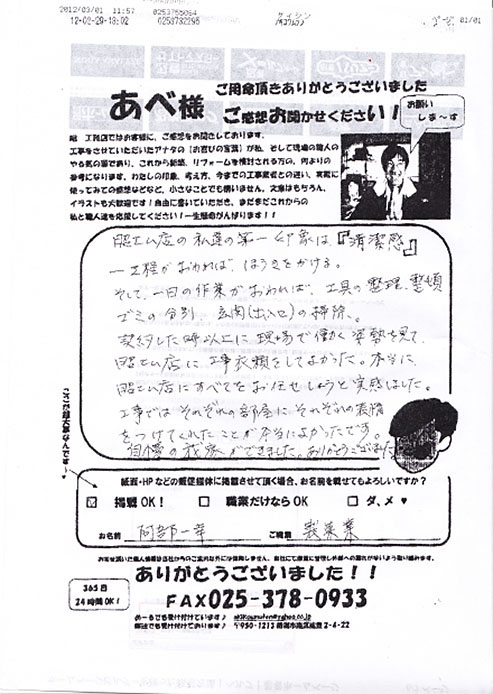 2012/03/01 11:57 0253755064
12-02-29-18:02 0253732295 01/01
ご用命頂きありがとうございました
あべ様 ご感想お聞かせください!
お願い
しま~す
昭工務店ではお客様に、ご感想をお聞きしております。
工事をさせていただいたアナタの「お喜びの言葉」が職人、そして現場の職人の
やる気の源であり、これから新築、リフォームを検討される方の、何よりの
参考になります。わたしの印象、考え方、今までの工事業者との違い、実際に
使ってみての感想などなど、小さなことでも構いません。文章はもちろん、
イラストも大歓迎です!自由に書いていただき、まだまだこれからの
私と職人達を応援してください!一生懸命がんばります!!
昭工ム店の私達の第一印象は、『清潔感』
一工程がおわれば、ほうきをかける。
そして、一日の作業がおわれば、工具の整理、整頓
ゴミの分別、玄関(出入せ)の掃除。
契約した時以上に現場で働く姿勢を見て、
昭工ム店に工事依頼をしてよかった。本当に、
昭工ム店にすべてをお任せしようと実感しました。
工事では それぞれの部屋に それぞれの表情
をつけてくれたことが本当によかったです。
自慢の我家ができました。ありがとうございました
ここが超大事なんです~
紙面・HPなどの販促媒体に掲載させて頂く場合、お名前を載せてもよろしいですか?
掲載OK! 職業だけならOK ダ、メ ♥
お名前 阿部一幸 ご職業 製菓業
お客様に頂いた個人情報は当社からのご案内以外には使用しません。当社にて厳重に管理し外部への漏れがないよう取り組みます。
ありがとうございました!!
365日
24時間OK! FAX025-378-0933
めーるでも受け付けています!
郵送でも受け付けております! 〒950-1213